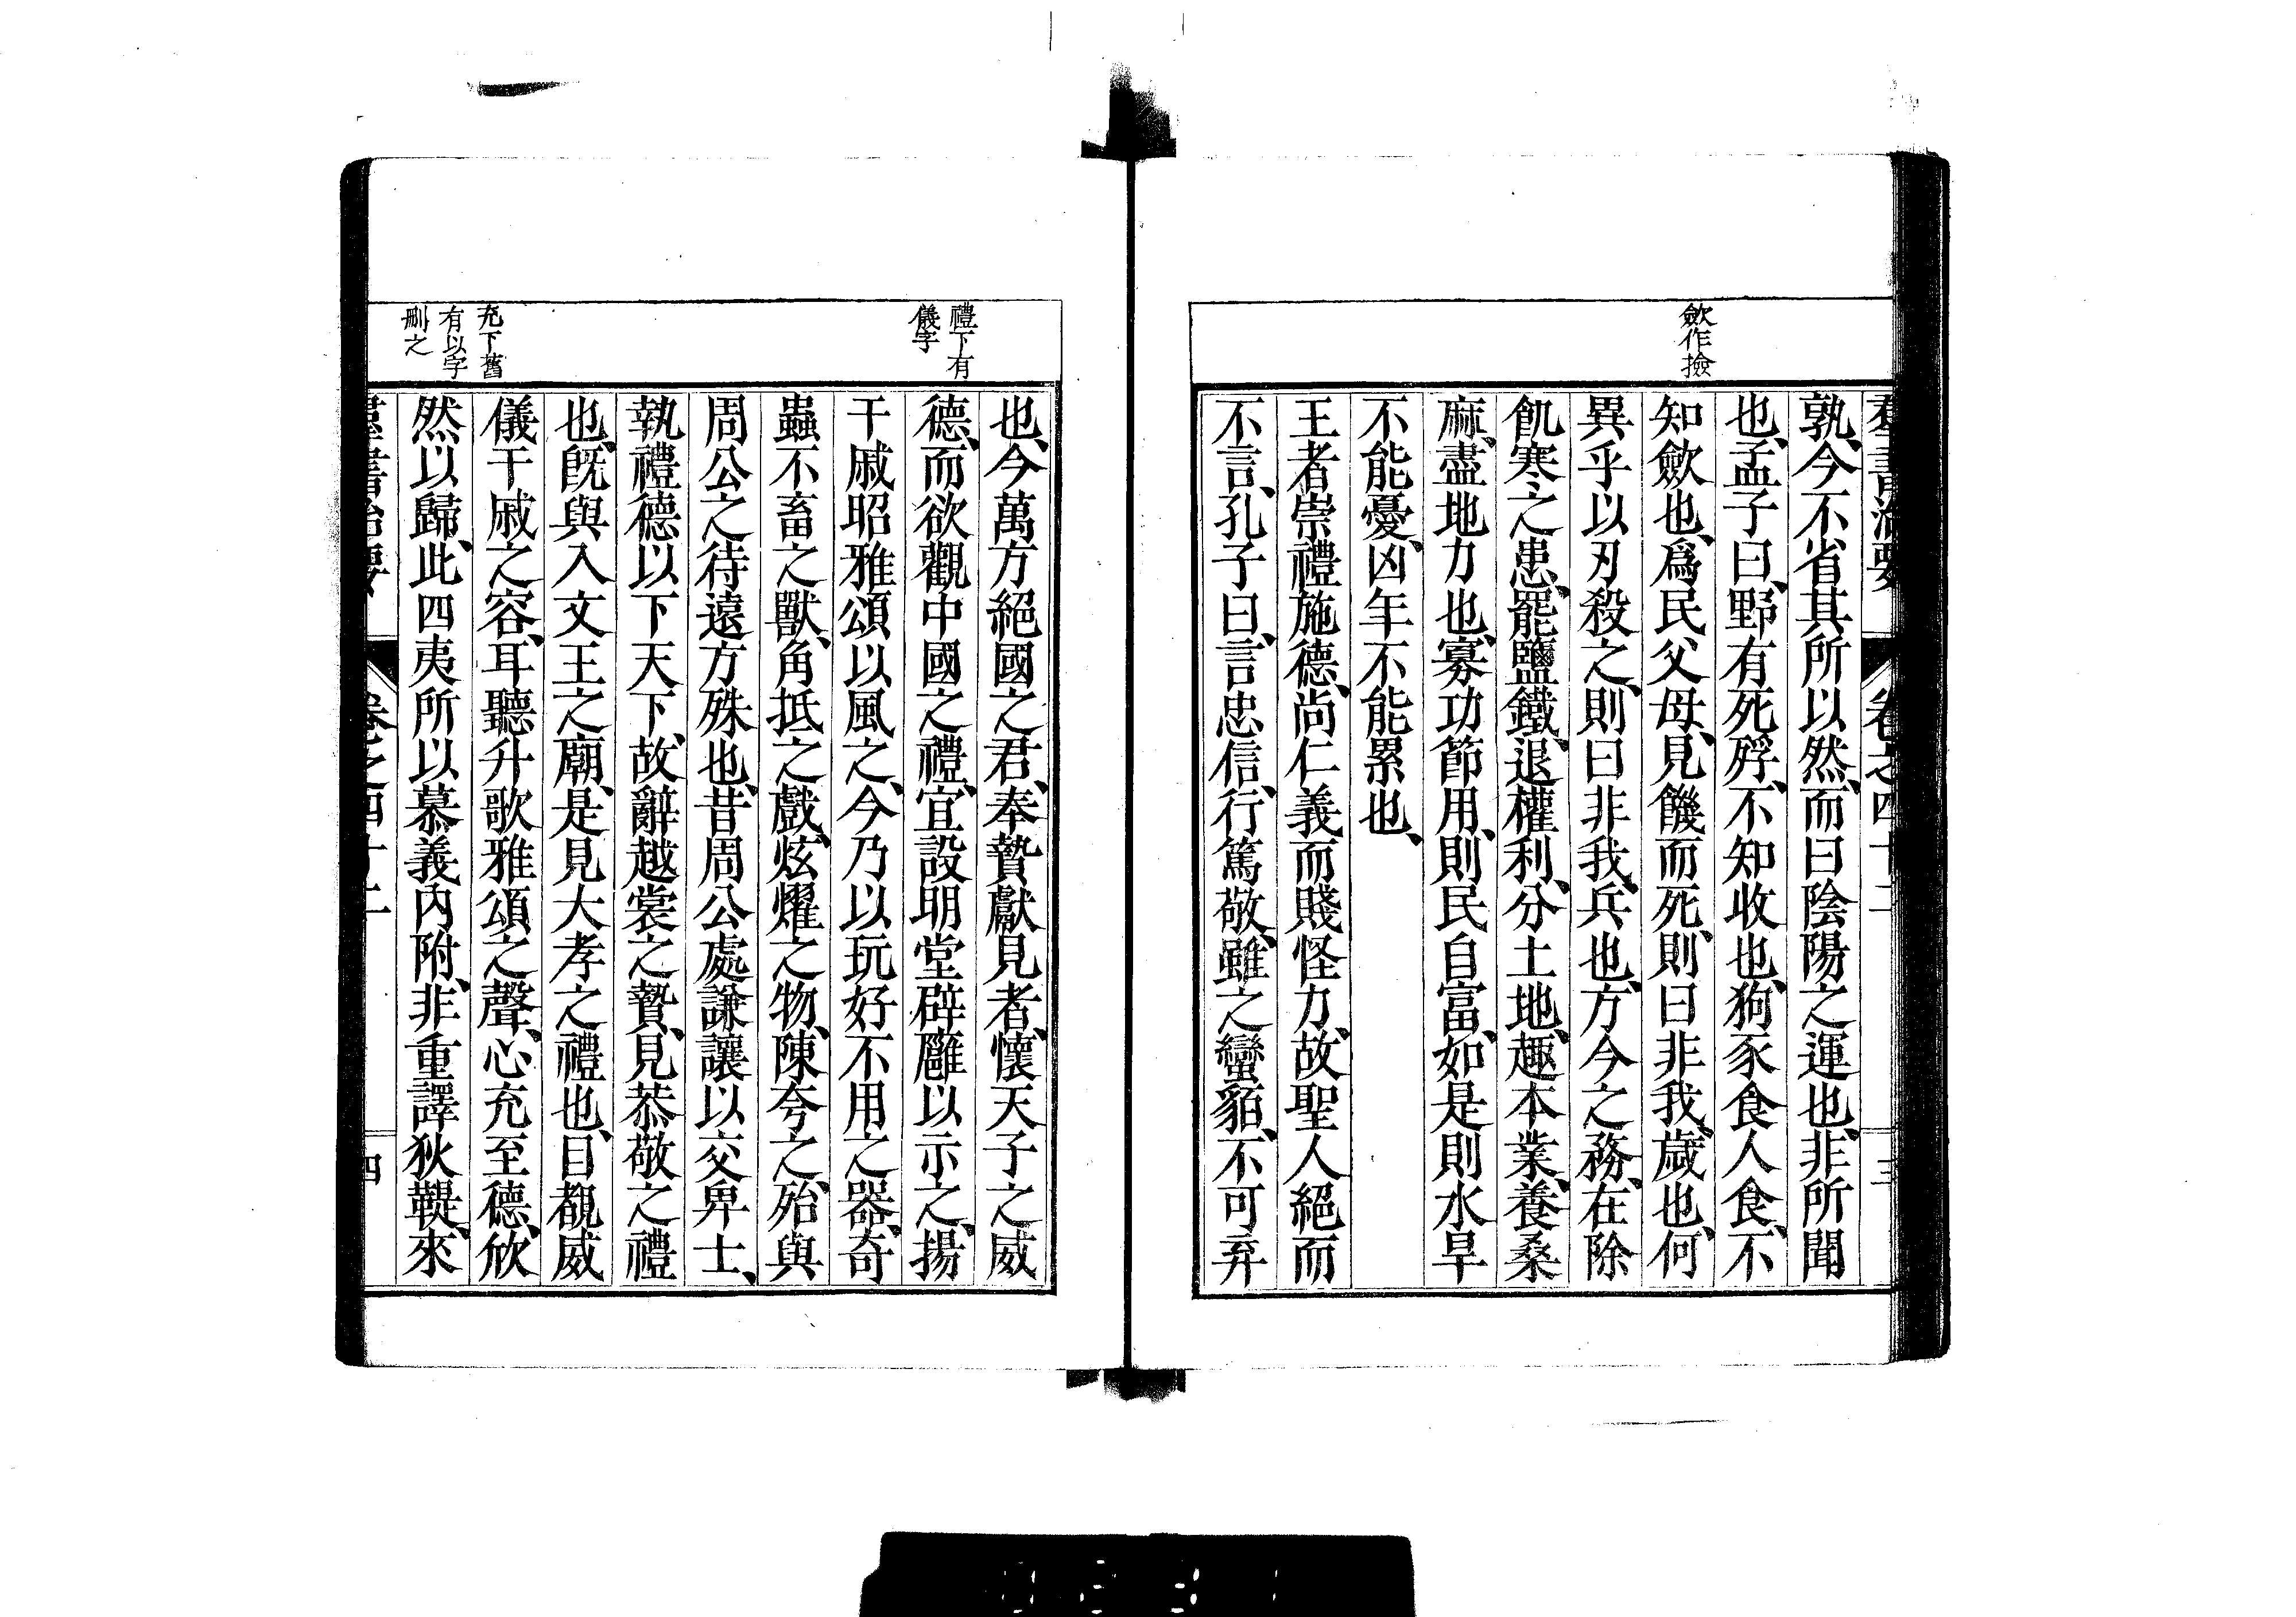 羣書治要 卷之四十二 三
歛作撿
孰、今不省其所以然、而曰陰陽之運也、非所聞
也、孟子曰、野有死殍、不知收也、狗豕食人食、不
知歛也、爲民父母、見饑而死、則曰非我、歲也、何
異乎以刃殺之、則曰非我、兵也、方今之務、在除
飢寒之患、罷鹽鐵、退權利、分土地、趣本業、養桑
麻、盡地力也、寡功節用、則民自富、如是則水旱
不能憂、凶年不能累也、
王者崇禮施德、尚仁義而賤怪力、故聖人絕而
不言、孔子曰、言忠信、行篤敬、雖之蠻貊、不可弃
禮下有
儀字
充下舊
有以字
刪之
也、今萬方絕國之君、奉贄獻見者、懷天子之威
德、而欲觀中國之禮、宜設明堂辟雝以示之、揚
干戚昭雅頌以風之、今乃以玩好不用之器、奇
蟲不畜之獸、角抵之戲、炫燿之物、陳夸之、殆與
周公之待遠方殊也、昔周公處謙讓以交卑士、
執禮德以下天下、故辭越裳之贄、見恭敬之禮
也、旣與入文王之廟、是見大孝之禮也、目覩威
儀干戚之容、耳聽升歌雅頌之聲、心充至德、欣
然以歸、此四夷所以慕義內附、非重譯狄鞮、來
羣書治要 卷之四十二 四